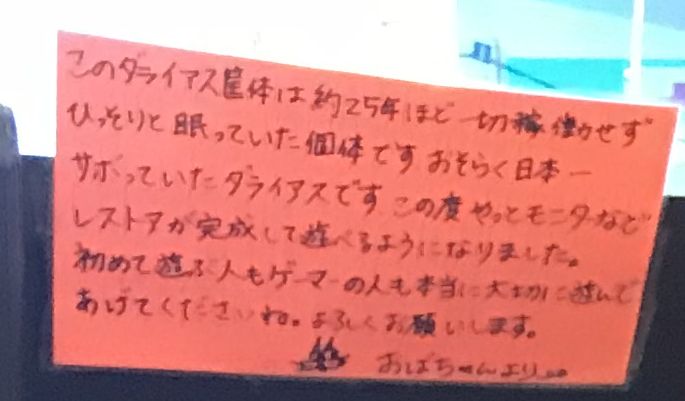 このダライアス筐体は約25年ほど一切稼働せず
ひっそりと眠っていた個体です おそらく日本一
サボっていたダライアスです この度やっとモニターなど
レストアが完成して遊べるようになりました。
初めて遊ぶ人もゲーマーの人も本当に大切に遊んで
あげてくださいね。よろしくお願いします。
おばちゃんより…